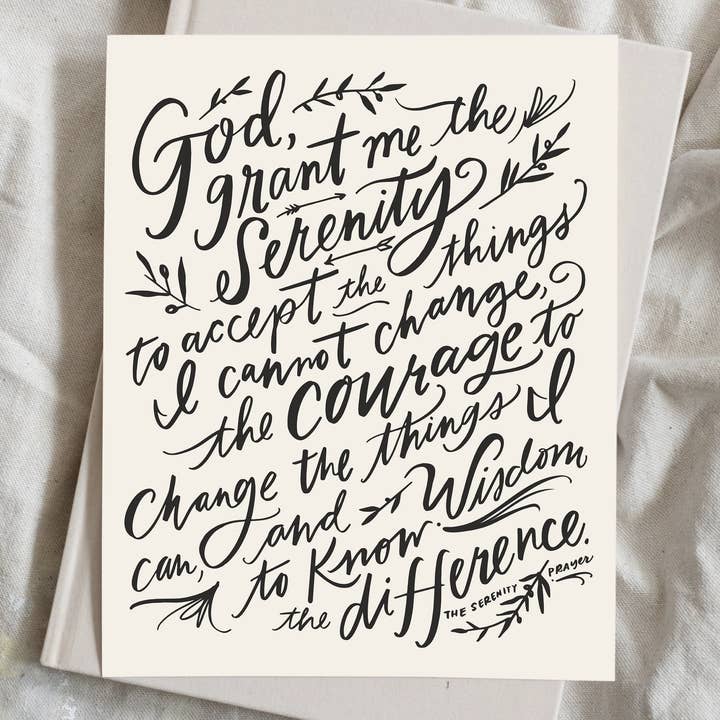 God,
grant me the
Serenity
to accept the things
I cannot change,
the courage to
change the things I
can, and Wisdom
to Know
the difference.
THE SERENITY PRAYER